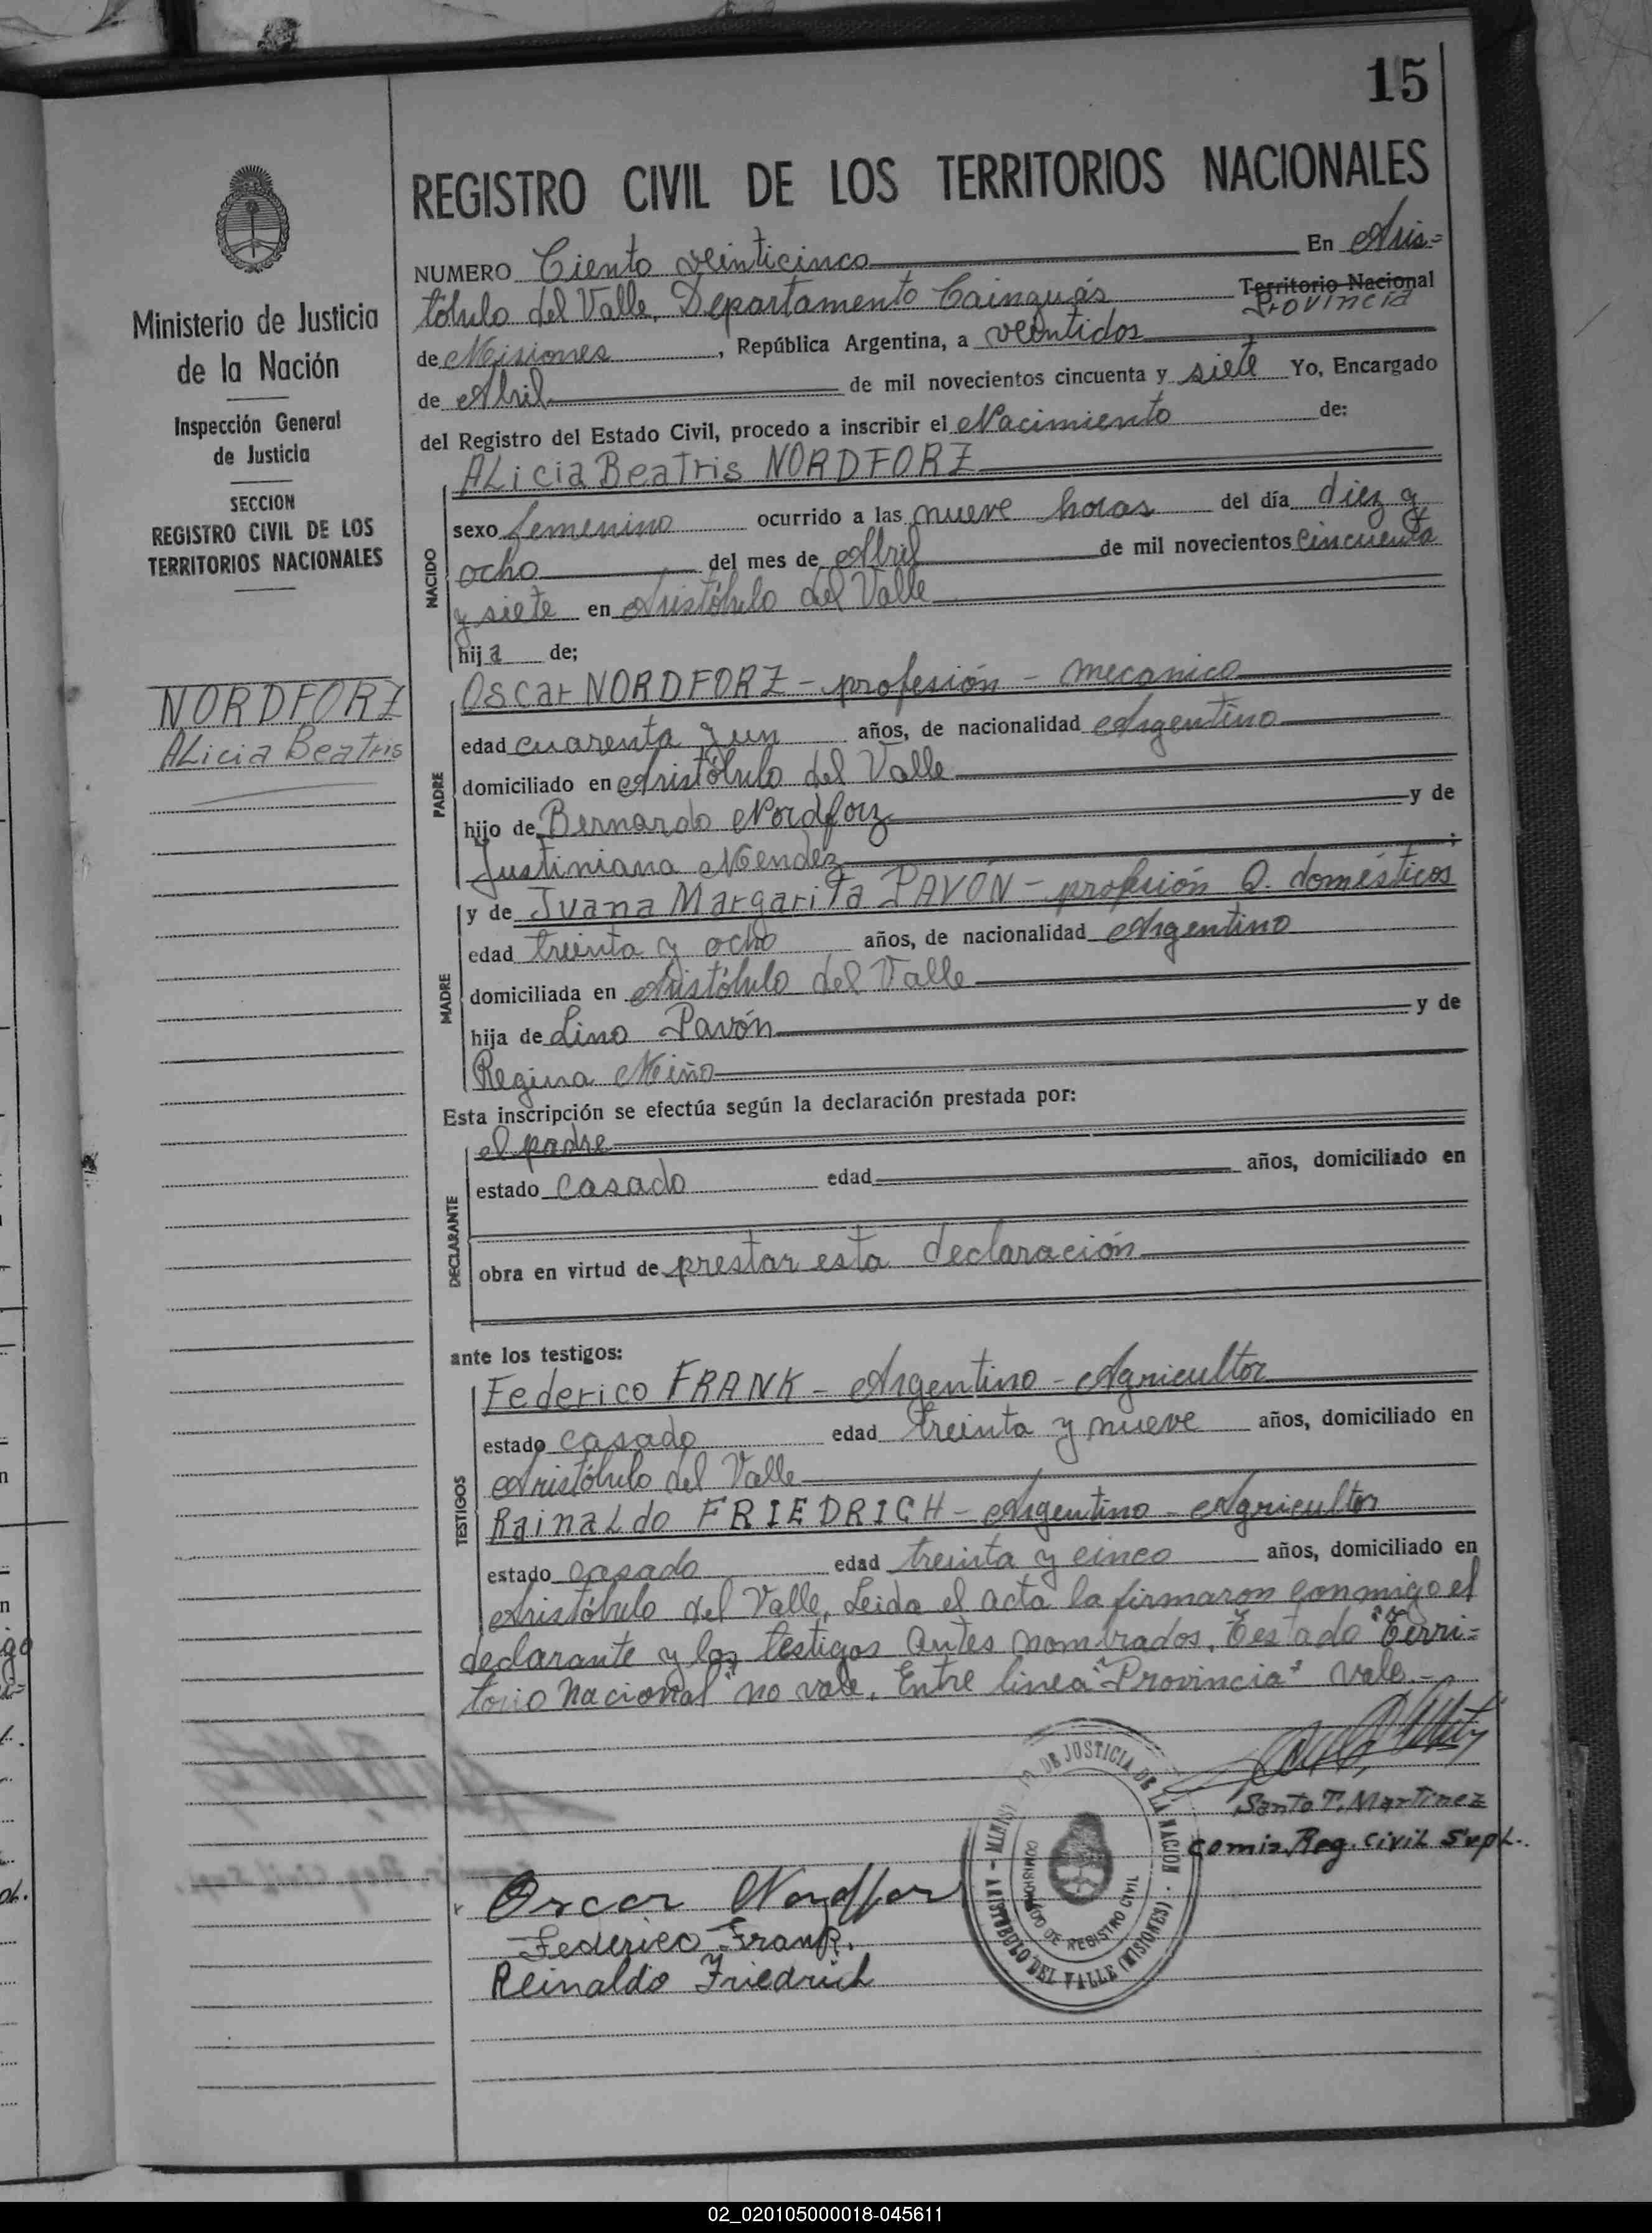 15
REGISTRO CIVIL DE LOS TERRITORIOS NACIONALES
Ministerio de Justicia
de la Nación
Inspección General
de Justicia
SECCION
REGISTRO CIVIL DE LOS
TERRITORIOS NACIONALES
NORDFORZ
Alicia Beatris
NUMERO Ciento veinticinco En Aris=
tóbulo del Valle, Departamento Cainguás Territorio Nacional
Provincia
de Misiones, República Argentina, a veintidos
de Abril de mil novecientos cincuenta y siete Yo, Encargado
del Registro del Estado Civil, procedo a inscribir el Nacimiento de:
NACIDO
Alicia Beatris NORDFORZ
sexo femenino ocurrido a las nueve horas del día diez y
ocho del mes de Abril de mil novecientos cincuenta
y siete en Aristóbulo del Valle
hija de;
PADRE
Oscar NORDFORZ - profesión - mecanico
edad cuarenta y un años, de nacionalidad Argentino
domiciliado en Aristóbulo del Valle
hijo de Bernardo Nordforz y de
Justiniana Mendez;
MADRE
y de Juana Margarita PAVÓN - profesión Q. domésticos
edad treinta y ocho años, de nacionalidad Argentino
domiciliada en Aristóbulo del Valle
hija de Lino Pavón y de
Regina Miño
Esta inscripción se efectúa según la declaración prestada por:
DECLARANTE
el padre
estado casado edad años, domiciliado en
obra en virtud de prestar esta declaración
ante los testigos:
TESTIGOS
Federico FRANK - Argentino - Agricultor
estado casado edad treinta y nueve años, domiciliado en
Aristóbulo del Valle
Rainaldo FRIEDRICH - Argentino - Agricultor
estado casado edad treinta y cinco años, domiciliado en
Aristóbulo del Valle, Leida el acta la firmaron conmigo el
declarante y los testigos antes nombrados. Testado "Terri=
torio Nacional" no vale. Entre linea "Provincia" vale.-
Santo T. Martinez
Comis. Reg. Civil Supl.
MINIST DE JUSTICIA DE LA NACION - ARISTOBULO DEL VALLE (MISIONES)
COMISIONADO DE REGISTRO CIVIL
Oscar Nordfor
Federico Frank.
Reinaldo Friedrich
02_020105000018-045611